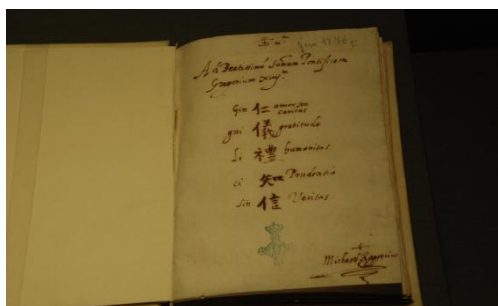 Ad Beatissimū Sūmum Pontificem
Gregorium xiij
Gin 仁 amor seu
caritas
gni 儀 gratitudo
Li 禮 humanitas
ci 知 Prudentia
Sin 信 Veritas
Michael Rogerius